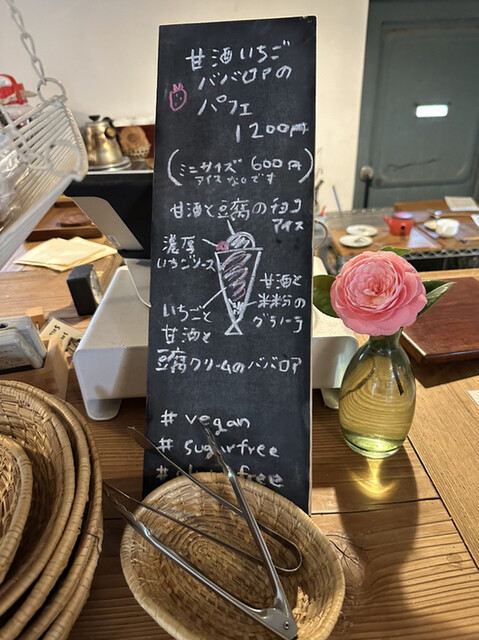 甘酒いちご
ババロアの
パフェ
1200円
(ミニサイズ 600円
アイスなしです)
甘酒と豆腐のチョコ
アイス
濃厚
いちごソース
甘酒と
米粉の
グラノーラ
いちごと
甘酒と
豆腐クリームのババロア
# vegan
# sugarfree
# free